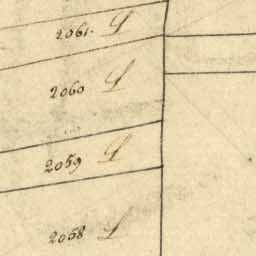 2061. L
2060 L
2059 L
2058 L